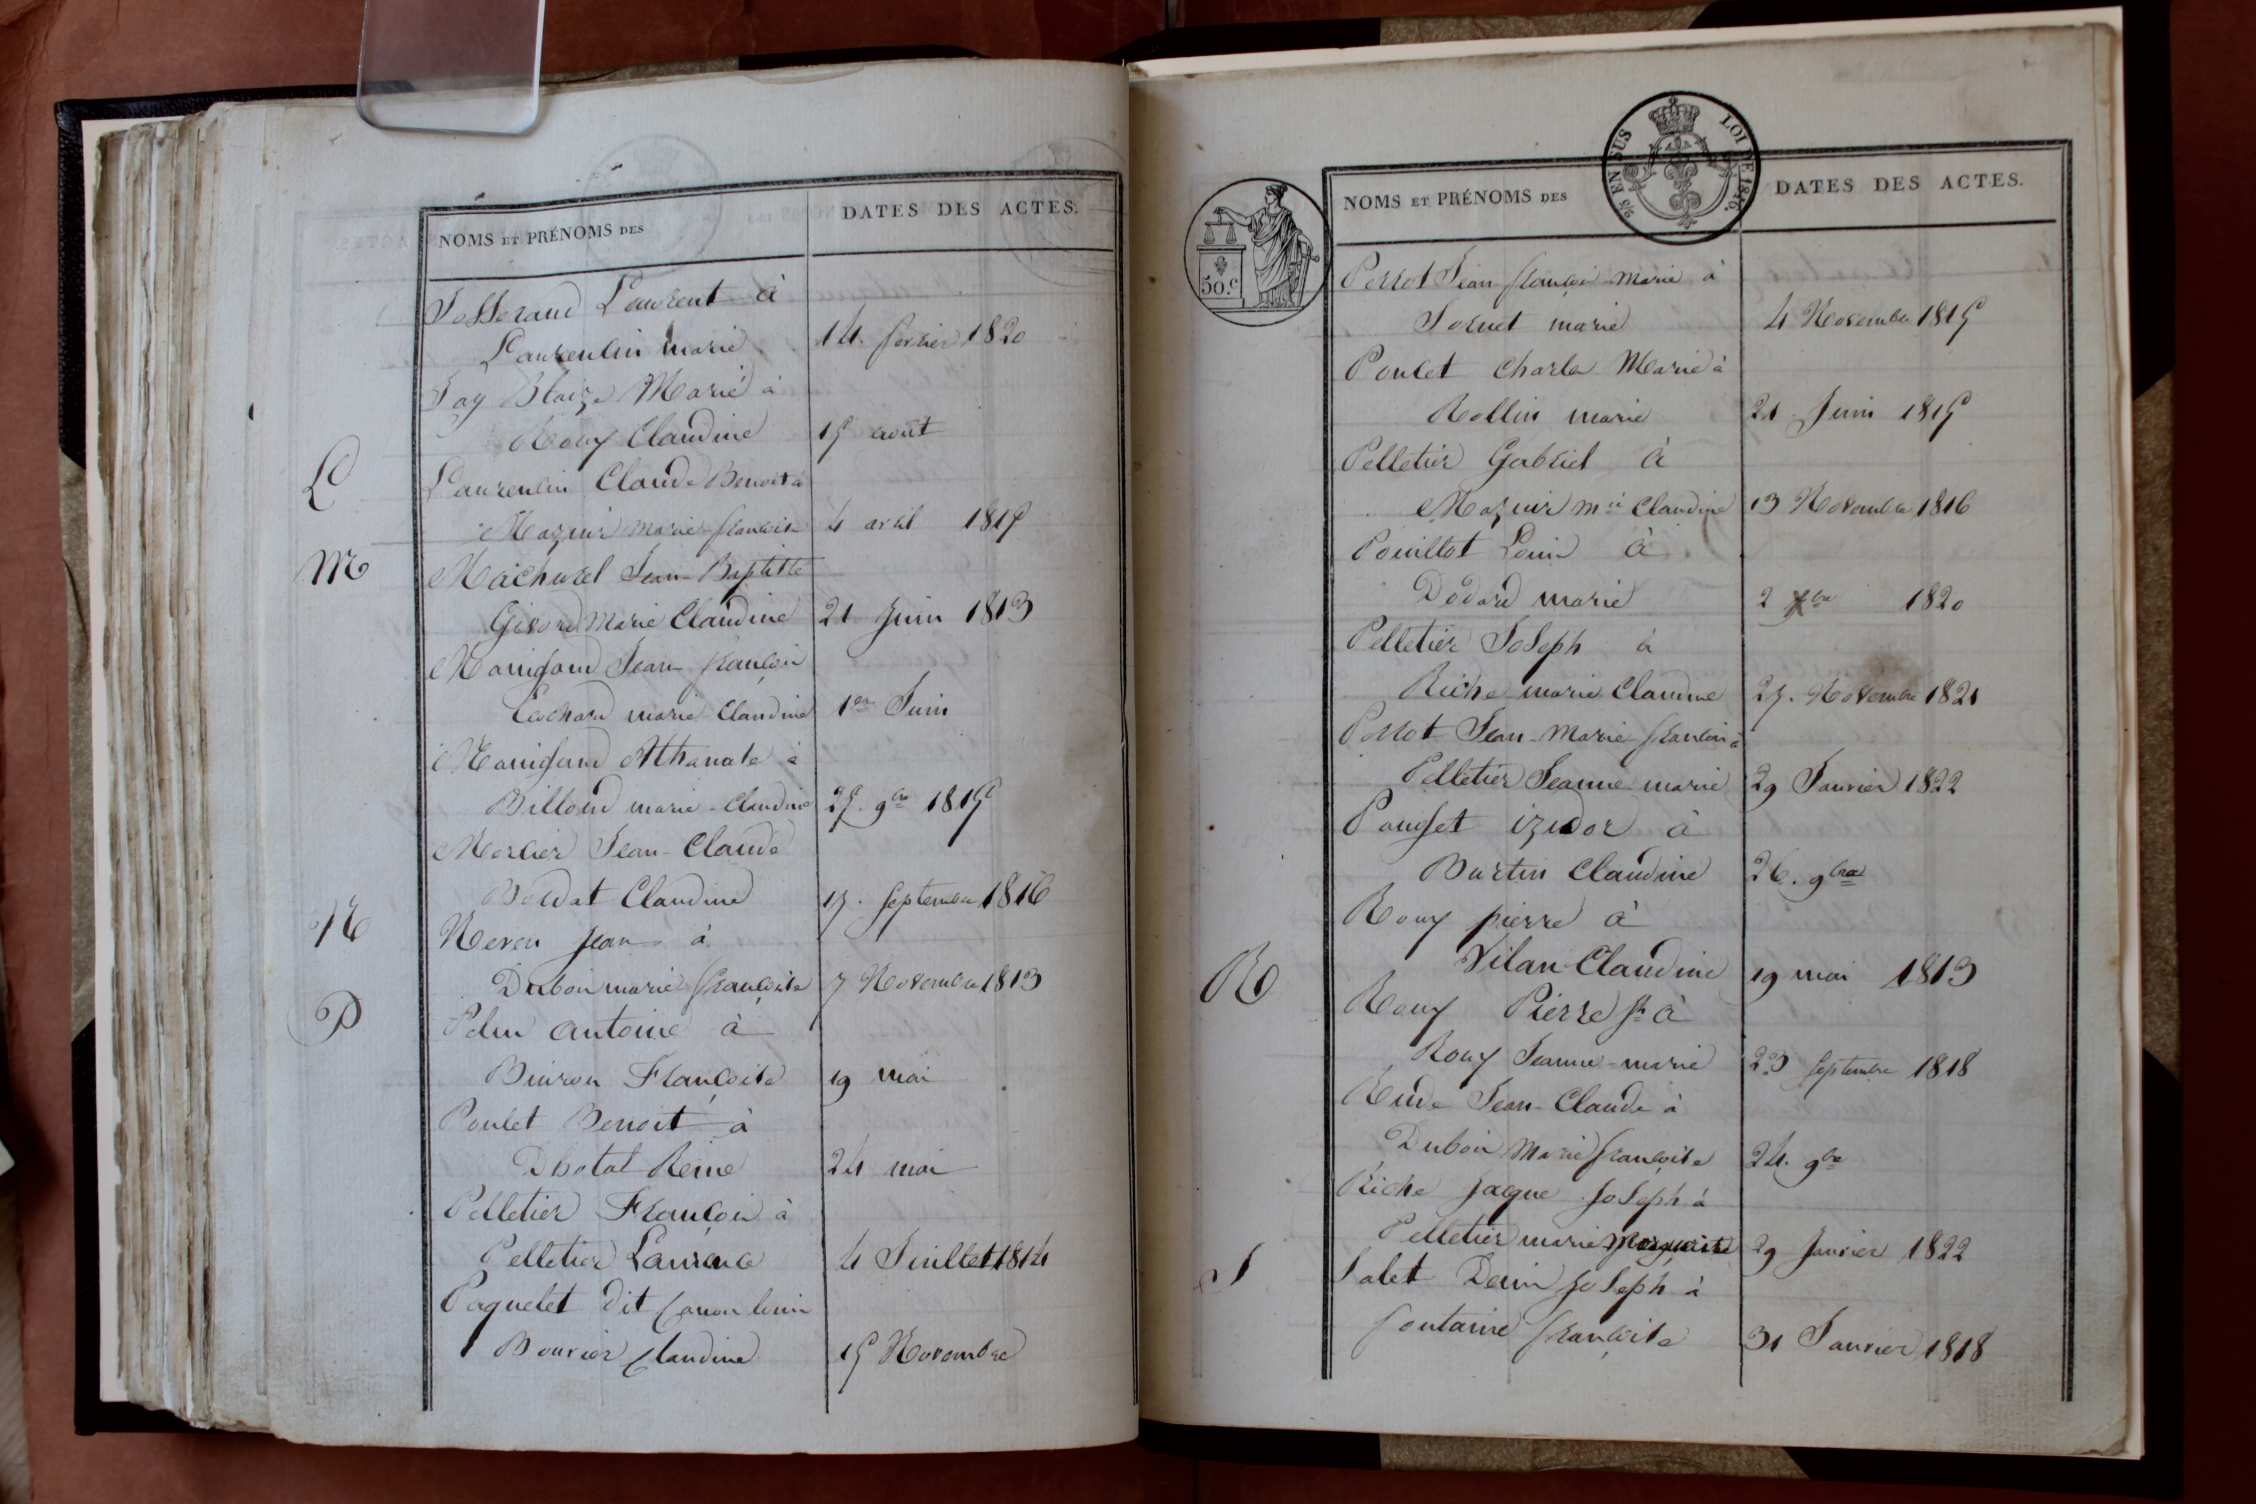 NOMS ET PRÉNOMS DES
DATES DES ACTES.
Josserand Laurent à
Laurenlin marie 14. fevrier 1820
Jay Blaize Marie à
Rouy Claudine 15 août
L
Laurenlin Claude Benoit à
Mazuir marie françoise 4 avril 1815
M
Machurel Jean-Baptiste
Girard Marie Claudine 21 Juin 1813
Manigand Jean françois
Cachard marie Claudine 1er Juin
Manigand Athanase à
Billoud marie-Claudine 25. 9bre 1815
Mercier Jean-Claude
Boudat Claudine 17. Septembre 1816
N
Neveu Jean à
Dubois marie françoise 7 Novembre 1813
P
Antoine à
Buiron Françoise 19 mai
Poulet Benoit à
Dhotal Reine 24 mai
Pelletier François à
Pelletier Laurence 4 Juillet 1814
Paquelet dit Canon louis
Bouvier Claudine 15 Novembre
50.c
3/5 EN SUS
LOI DE 1816.
NOMS ET PRÉNOMS DES
DATES DES ACTES.
Perrot Jean françois Marie à
Sornet marie 4 Novembre 1815
Poulet Charles Marie à
Rollin marie 21 Juin 1815
Pelletier Gabriel à
Mazuir mie Claudine 13 Novembre 1816
Pouillot Louis à
Dodard marie 2 Xbre 1820
Pelletier Joseph à
Riche marie Claudine 27. Novembre 1821
Perrot Jean-Marie françois à
Pelletier Jeanne marie 29 Janvier 1822
Pousset izidor à
Burtin Claudine 26. 9bre
Rouy pierre à
Vilan Claudine 19 mai 1813
R
Rouy Pierre fs à
Rouy Jeanne-marie 23 Septembre 1818
Rude Jean-Claude à
Dubois Marie françoise 24. 9bre
Riche Jacque Joseph à
Pelletier marie Marguerite 29 Janvier 1822
S
Salet Denis Joseph à
fontaine françoise 31 Janvier 1818